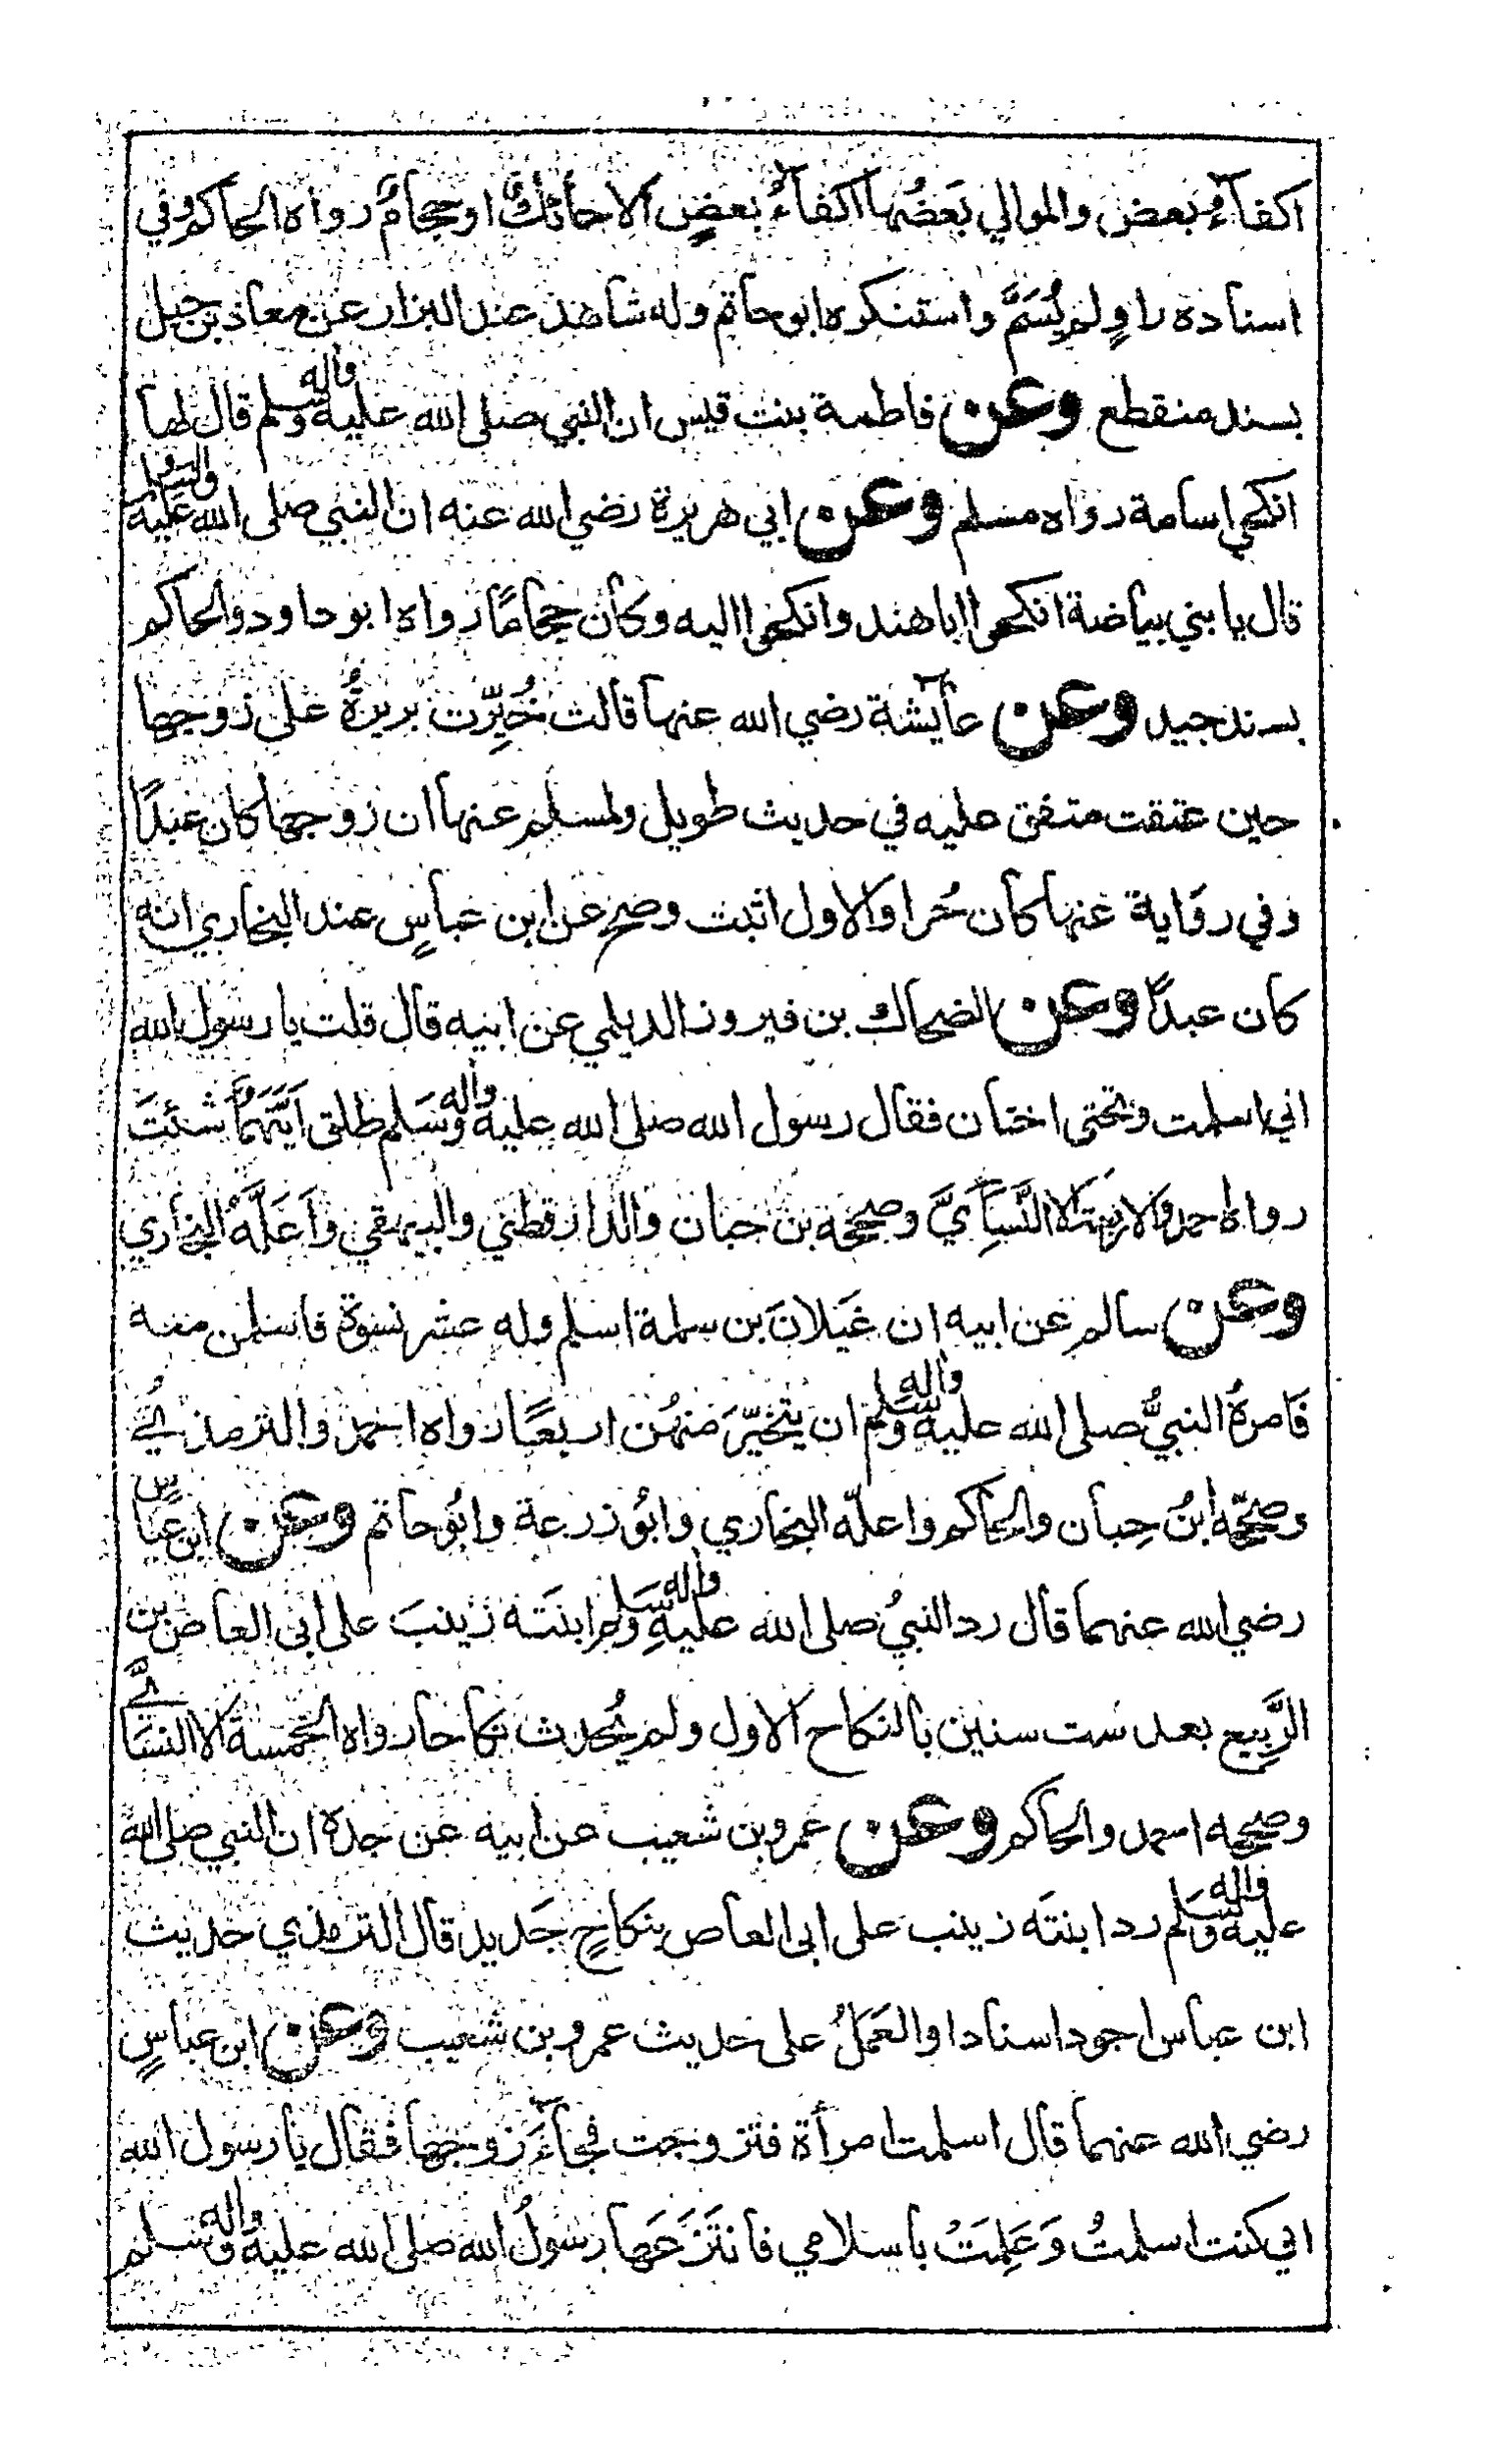 اكفآءُ بعض والموالي بَعضُها اكفآءُ بعضٍ الا حائكٌ او حجامٌ رواه الحاكم وفي
اسناده راوٍ لم يُسَمَّ واستنكره ابو حاتم وله شاهد عند البزار عن معاذ بن جبل
بسند منقطع وعن فاطمة بنت قيس ان النبي صلى الله عليه واله وسلم قال لها
انكحي اسامة رواه مسلم وعن ابي هريرة رضي الله عنه ان النبي صلى الله عليه واله وسلم
قال يا بني بياضة انكحوا ابا هند وانكحوا اليه وكان حجامًا رواه ابو داود والحاكم
بسند جيد وعن عآيشة رضي الله عنها قالت خُيِّرت بريرةُ على زوجها
حين عتقت متفق عليه في حديث طويل ولمسلم عنها ان زوجها كان عبدًا
وفي رواية عنها كان حُرا والاول اثبت وصح عن ابن عباسٍ عند البخاري انه
كان عبدًا وعن الضحاك بن فيروز الديلمي عن ابيه قال قلت يا رسول الله
اني اسلمت وتحتي اختان فقال رسول الله صلى الله عليه واله وسَلم طلق ايَّتَهُمَا شئتَ
رواه احمد والاربعة الا النَّسَآيَّ وصححه بن حبان والدارقطني والبيهقي وَاَعَلَّهُ البخاري
وعن سالم عن ابيه ان غَيلانَ بن سلمة اسلم وله عشر نسوة فاسلمن معه
فَامرهُ النبيُّ صلى الله عليه واله وسلم ان يتخيَّرَ منهُن اربعًا رواه احمد والترمذيُّ
وصحّحه ابنُ حِبان والحاكم واعلّه البخاري وابُو زرعة وابُو حاتم وعن ابن عباسٍ
رضي الله عنهما قال رد النبيُ صلى الله عليهِ واله وسلم ابنَتَه زينبَ على ابى العاص بن
الرَّبِيع بعد ست سنين بالنكاح الاول ولم يُحدث نكاحا رواه الخمسة الا النسَآئيَّ
وصححه احمد والحاكم وعن عمرو بن شعيب عن ابيه عن جده ان النبي صلى الله
عليه واله وسلم رد ابنتَه زينب على ابى العاص بنكاحٍ جَديد قال الترمذي حديث
ابن عباس اجود اسنادا والعَمَلُ على حديث عمرو بن شعيب وعن ابن عباسٍ
رضي الله عنهما قال اسلمت امرأة فتزوجت فجآءَ زوجها فقال يا رسول الله
اني كنت اسلمتُ وَعَلِمَتْ باسلامي فانتَزَعَها رسُولُ الله صلى الله عليه واله وسلم